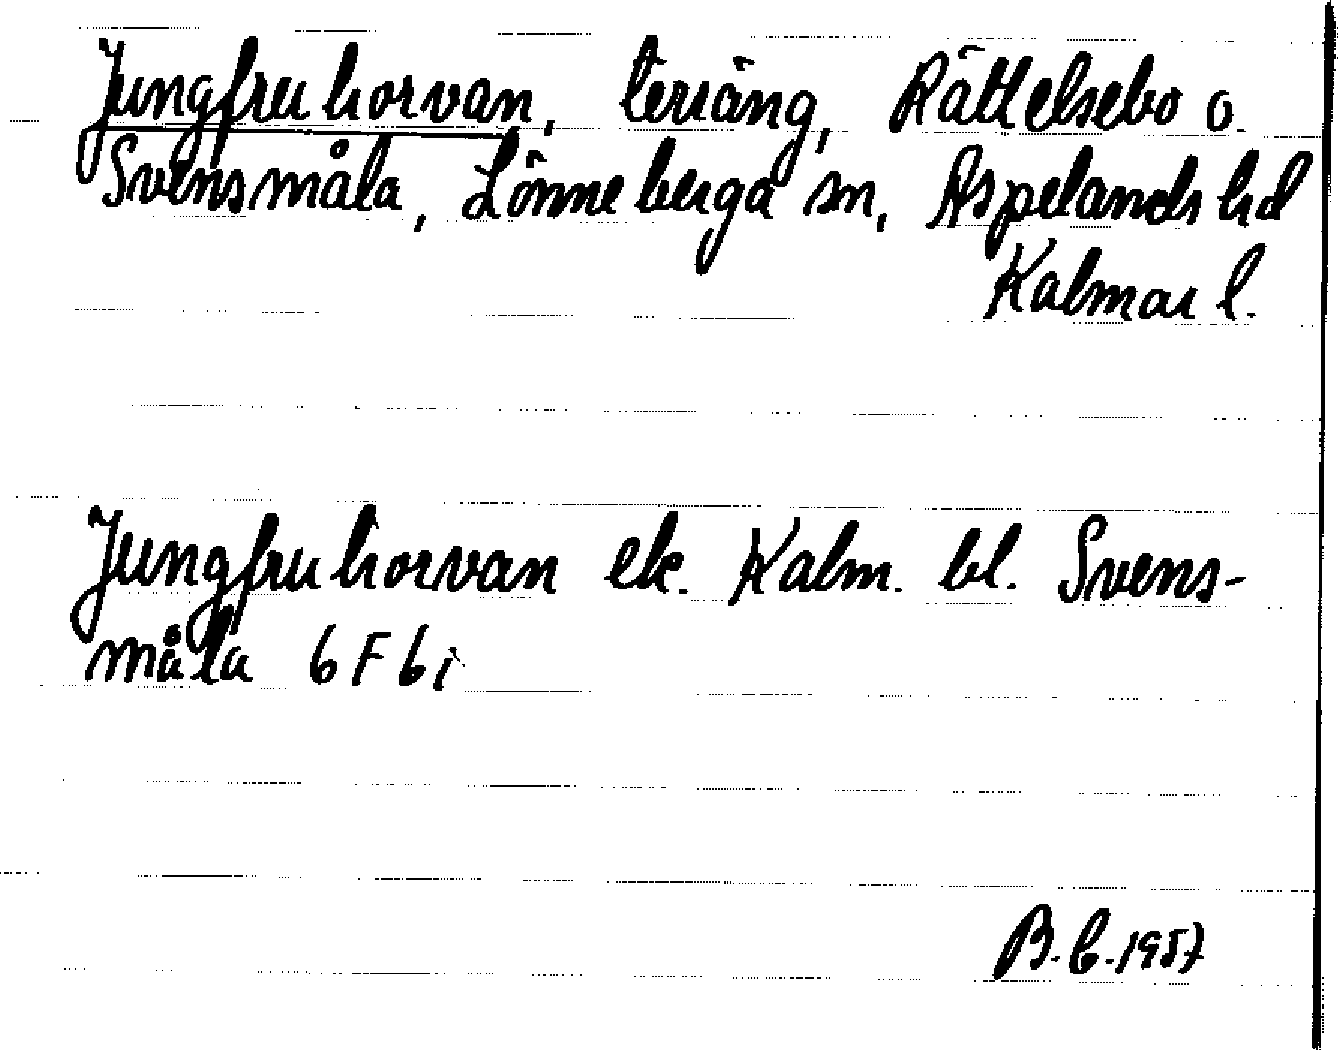 Jungfruhorvan, teräng, Rättelsebo o.
Svensmåla, Lönneberga sn, Aspelands hd
Kalmar l.
Jungfruhorvan ek. Kalm. bl. Svens-
måla 6 F 6 i
B.C. 1957